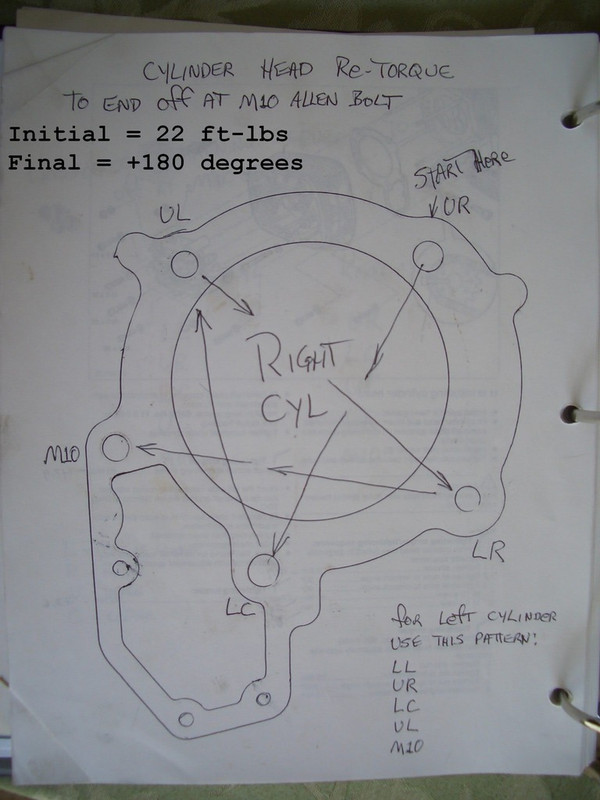 CYLINDER HEAD Re-TORQUE
To END off AT M10 ALLEN BOLT
Initial = 22 ft-lbs
Final = +180 degrees
START HERE
UL
UR
RIGHT
CYL
M10
LR
LC
for Left CYLINDER
USE THIS PATTERN:
LL
UR
LC
UL
M10